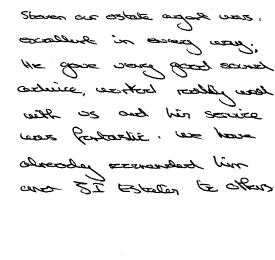 Steven our estate agent was.
excellent in every way,
He gave very good sound
advice, worked really well
with us and his service
was fantastic. We have
already recommended him
and SI Estates to others